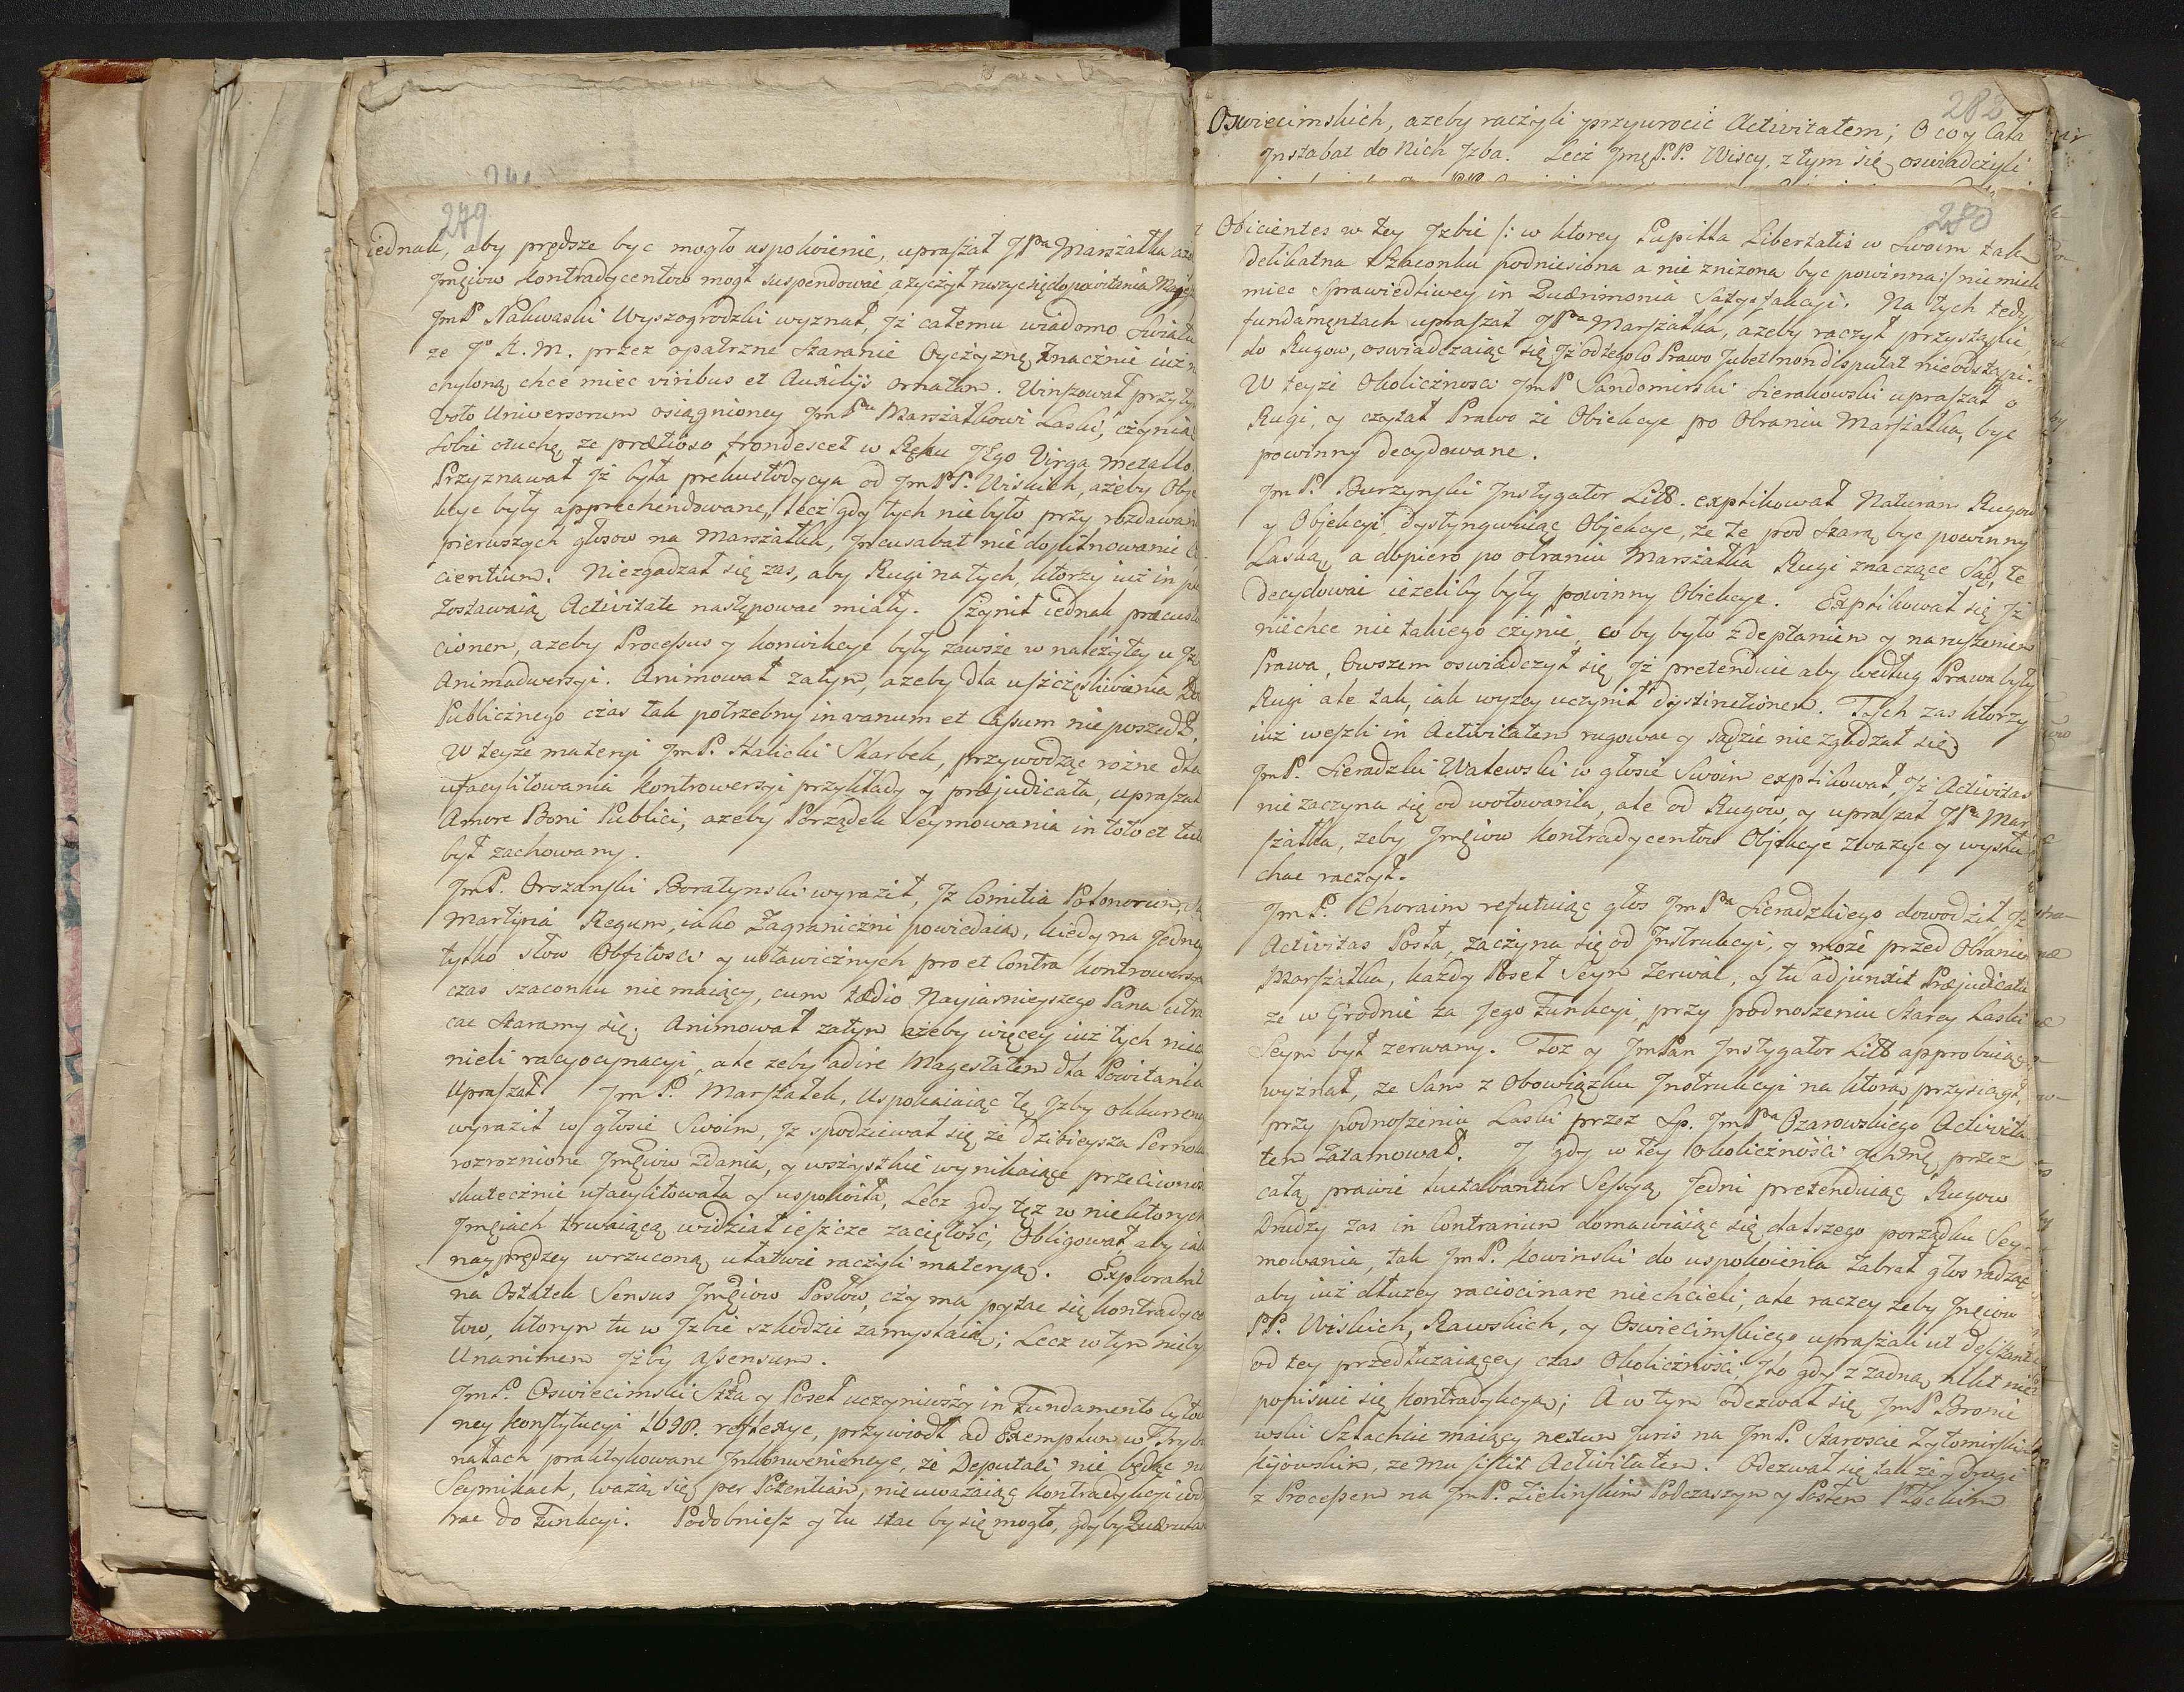 279
iednak, aby prędsze byc mogło uspokoienie, upraszał JPa Marszałka aze
Jmęiow Kontradycentow mogł suspendowac, a życzył ruszyc się do powitania Maje
JmP Nakwaski Wyszogrodzki wyznał, Jż całemu wiadomo Swiatu
ze Jo K. M. przez opatrzne staranie Oyczyznę znacznie iuż n
chyloną chce miec viribus et Auxilijs ornatam. Winszował przy tym
Voto Universorum osiągnioney JmPu Marszałkowi Laski, czyniąc
sobie otuchę, ze prætioso frondescet w Ręku JEgo Virga metallo.
Przyznawał Jż była prekustodycya od JmPP. Wiskich, azeby Obje
kcye były apprehendowane, lecz gdy tych nie było przy rozdawaniu
pierwszych głosow na Marszałka, Jncusabat nie dopilnowanie O
cientium. Niezgadzał się zas, aby Rugi na tych, ktorzy iuż in p
zostawaią Activitate następowac miały. Czynił iednak præcusto
cionem, azeby Processus y konwikcye były zawsze w należytey u Jz
Animadwersyi. Animował zatym, azeby dla uszczęsliwienia Do
Publicznego czas tak potrzebny in vanum et Cassum nie poszedł.
W teyze materyi JmP. Halicki Skarbek, przywodząc rożne dla
ufacylitowania kontrowersyi przykłady y præjudicata, upraszał
Amore Boni Publici, azeby Porządek Seymowania in toto et
był zachowany.
JmP. Orszanski Boratynski wyraził, Jż Comitia Polonorum,
Martyria Regum, iako Zagraniczni powiedaią, kiedy na Jedney
tylko słow Obfitosci y ustawicznych pro et Contra kontrowersya
czas szacunku nie maiący, cum tædio Nayiasnieyszego Pana utra
cac staramy się. Animował zatym azeby więcey iuż tych nie
nieli racyocynacyi, ale zeby adire Magestatem dla Powitania
Upraszał. JmP. Marszałek, Uspokaiaiąc tę Jzby okkurren
wyraził w głosie Swoim, Jż spodziewał się że dzisieysza Pern
rozroznione Jmęiow Zdania, y wszystkie wynikaiące przeciwnos
skutecznie ufacylitowała y uspokoiła, Lecz gdy tęż w niektorych
Jmęiach trwaiącą widział ieszcze zaciętosc, Obligował, aby iak
nayprędzey wrzuconą ułatwic raczyli materyą. Explorabat
na Ostatek Sensus Jmęiow Posłow, czy ma pytac się kontradyce
tow, ktorym tu w Jzbie szkodzic zamyslaią; Lecz w tym nieby
Unanimem Jzby assensum.
JmP. Oswiecimski Stta y Poseł uczyniwszy in Fundamento Cyto
ney konstytucyi 1698. reflexye, przywiodł ad Exemplum w Tryb
nałach praktykowane Jnkonweniencye, że Deputaci nie będąc na
Seymikach, ważą się per Potentiam, nieuważaiąc kontradykcyi
rac do Funkcyi. Podobniesz y tu stac by się mogło, gdyby
282
Oswiecimskich, azeby raczyli przywrocic Activitatem; O co y Cała
Jnstabat do Nich Jzba. Lecz Jmę P.P. Wiscy, z tym się oswiadczyli
280
Obicientes w tey Jzbie /: w ktorey Pupilla Libertatis w Swoim tak
delikatna szacunku podniesiona a nie zniżona byc powinna :/ nie mieli
miec Sprawiedliwey in Quærimonia Satysfakcyi. Na tych tedy
fundamentach upraszał JPa Marszałka, azeby raczył przystąpic
do Rugow, oswiadczaiąc się Jż od tego co Prawo Jubet non disputat nieodstąpi.
W teyże Okolicznosci JmP Sandomirski Sierakowski upraszał o
Rugi, y czytał Prawo że Obiekcye po Obraniu Marszałka, byc
powinny decydowane.
JmP. Burzynski Jnstygator Litt. explikował Naturam Rugow
y Objekcyi, dystyngwuiąc Objekcye, że te pod starą byc powinny
Laską, a dopiero po obraniu Marszałka Rugi znaczące Sąd, te
decydowac iezeliby były powinny Obiekcye. Explikował się, Jż
niechce nic takiego czynic, co by było zdeptaniem y naruszeniem
Prawa, Owszem oswiadczył się Jż pretenduie aby według Prawa były
Rugi ale tak, iak wyzey uczynił distinctionem. Tych zas ktorzy
iuż weszli in Activitatem rugowac y sądzic nie zgadzał się.
JmP. Sieradzki Walewski w głosie Swoim explikował, Jż Activitas
nie zaczyna się od wotowania, ale od Rugow, y upraszał JPa Mar
szałka, zeby Jmęiow kontradycentow Objekcye zwazyc y wysłu
chac raczył.
JmP. Choraim refutuiąc głos JmPa Sieradzkiego dowodził, Jż
Activitas Posła, zaczyna się od Jnstrukcyi, y może przed Obraniem
Marszałka, każdy Poseł Seym zerwac, y tu adjunxit Præjudicatum
że w Grodnie za Jego Funkcyi, przy podnoszeniu Starey Laski
Seym był zerwany. Toż y JmPan Jnstygator Litt approbuiąc
wyznał, ze Sam z Obowiązku Jnstrukcyi na ktorą przysiągł,
przy podnoszeniu Laski przez Sp. JmPa Ozarowskiego Activita
tem zatamował. J gdy w tey Okolicznosci przez
całą prawie luctabantur Sessyą Jedni pretenduiąc Rugow
Drudzy zas in Contrarium domawiaiąc się dalszego porządku Sey
mowania, tak JmP. Kowinski do uspokoienia Zabrał głos radząc
aby iuż dłuzey raciocinare niechcieli, ale raczey żeby Jmęiow
PP. Wiskich, Rawskich, y Oswiecimskiego upraszali ut desistant
od tey przedłuzaiącey czas Okolicznosci, Jło gdy z zadną nikt nie
popisuie się kontradykcyą; A w tym odezwał się JmP Bronie
wski Szlachcic maiący nexum Juris na JmP. Staroscie Zytomirskim
kijowskim, ze mu sistit Activitatem. Odezwał się tak że y drugi
z Processem na JmP. Zielinskim Podczaszym y Posłem Płockim